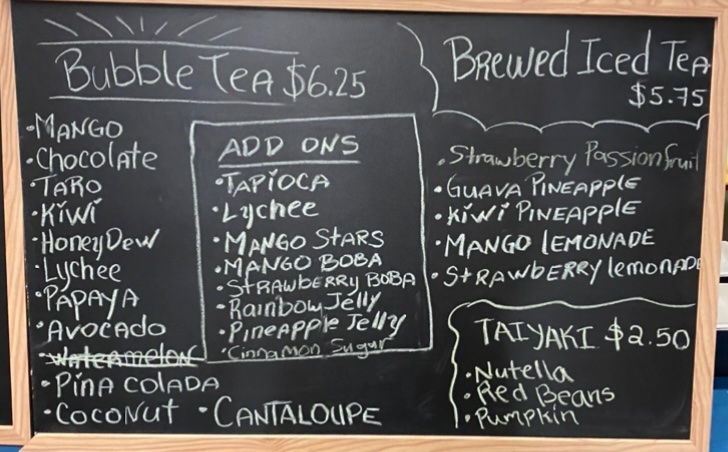 Bubble Tea $6.25
• Mango
• Chocolate
• Taro
• Kiwi
• HoneyDew
• Lychee
• Papaya
• Avocado
• Watermelon
• Pina Colada
• Coconut • Cantaloupe
Add Ons
• Tapioca
• Lychee
• Mango Stars
• Mango Boba
• Strawberry Boba
• Rainbow Jelly
• Pineapple Jelly
• Cinnamon Sugar
Brewed Iced Tea
$5.75
• Strawberry Passionfruit
• Guava Pineapple
• Kiwi Pineapple
• Mango Lemonade
• Strawberry lemonade
Taiyaki $2.50
• Nutella
• Red Beans
• Pumpkin